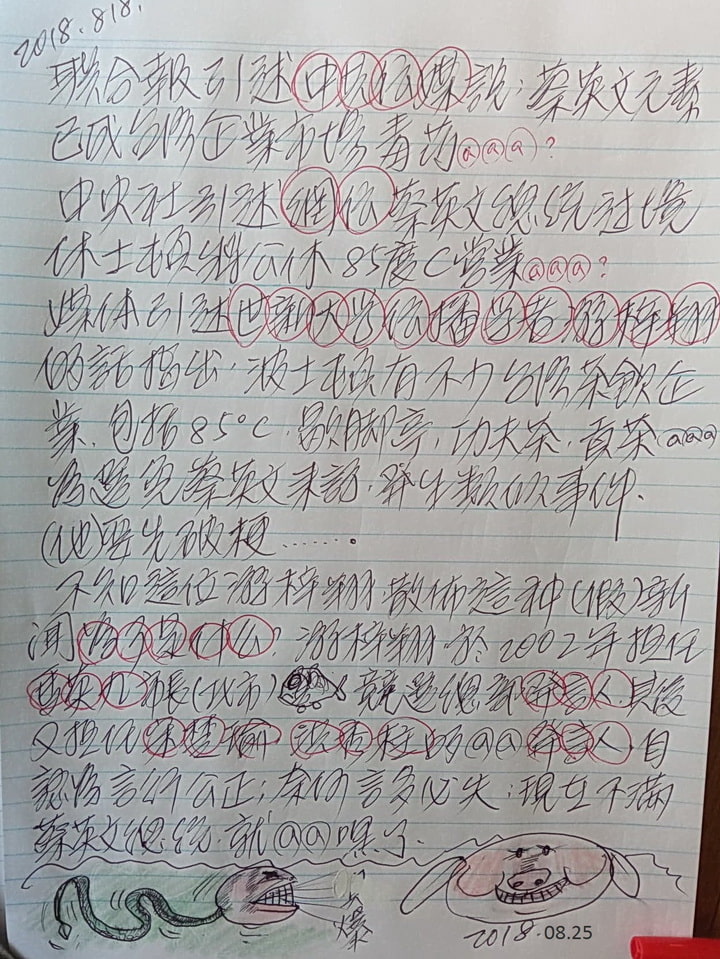 2018.8.18.
聯合報引述中時傳媒說：蔡英文元素
已成台灣企業市場毒药@@@？
中央社引述網传蔡英文總統过境
休士頓辦公休85度C営業@@@？
媒体引述世新大学传播学者游梓翔
的話指出，波士頓有不少台灣茶飲企
業，包括85°C，歇脚亭，功夫茶，貢茶@@@
為避免蔡英文來訪，發生類似事件，
(他)要先破梗......。
不知這位游梓翔散佈這种(假)新
闻為了是什么？游梓翔於2002年担任
馬英九市長(北市)競選總部發言人，其後
又担任宋楚瑜，洪秀柱的@@發言人，自
認為言行公正，奈何言多必失，現在不滿
蔡英文總統，就@@嘿了。
大爆
2018.08.25